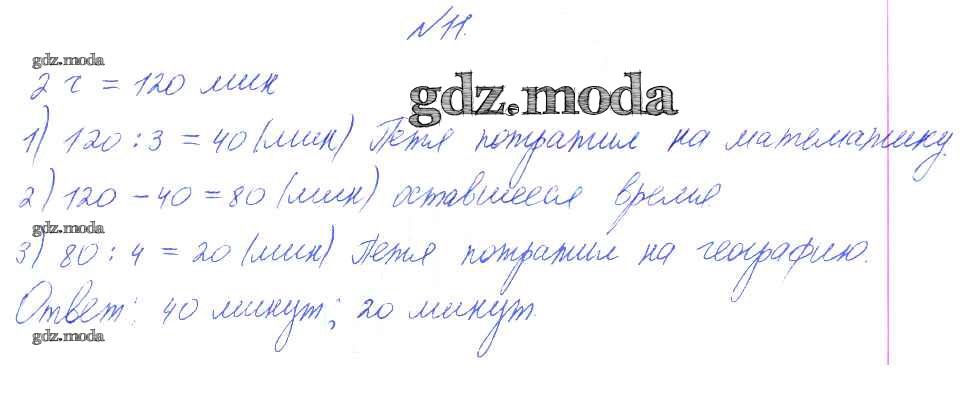 № 11.
gdz.moda
2 ч = 120 мин
gdz.moda
1) 120 : 3 = 40 (мин) Петя потратил на математику.
2) 120 - 40 = 80 (мин) оставшееся время
gdz.moda
3) 80 : 4 = 20 (мин) Петя потратил на географию.
Ответ: 40 минут; 20 минут.
gdz.moda